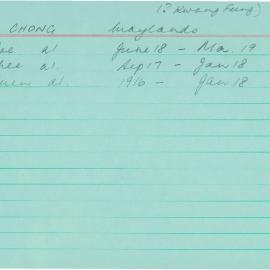 (? Kwong Fung)
CHONG Maylands
at June 18 - Mar. 19
at. Sep 17 - Jan 18
at. 1916 - Jan 18